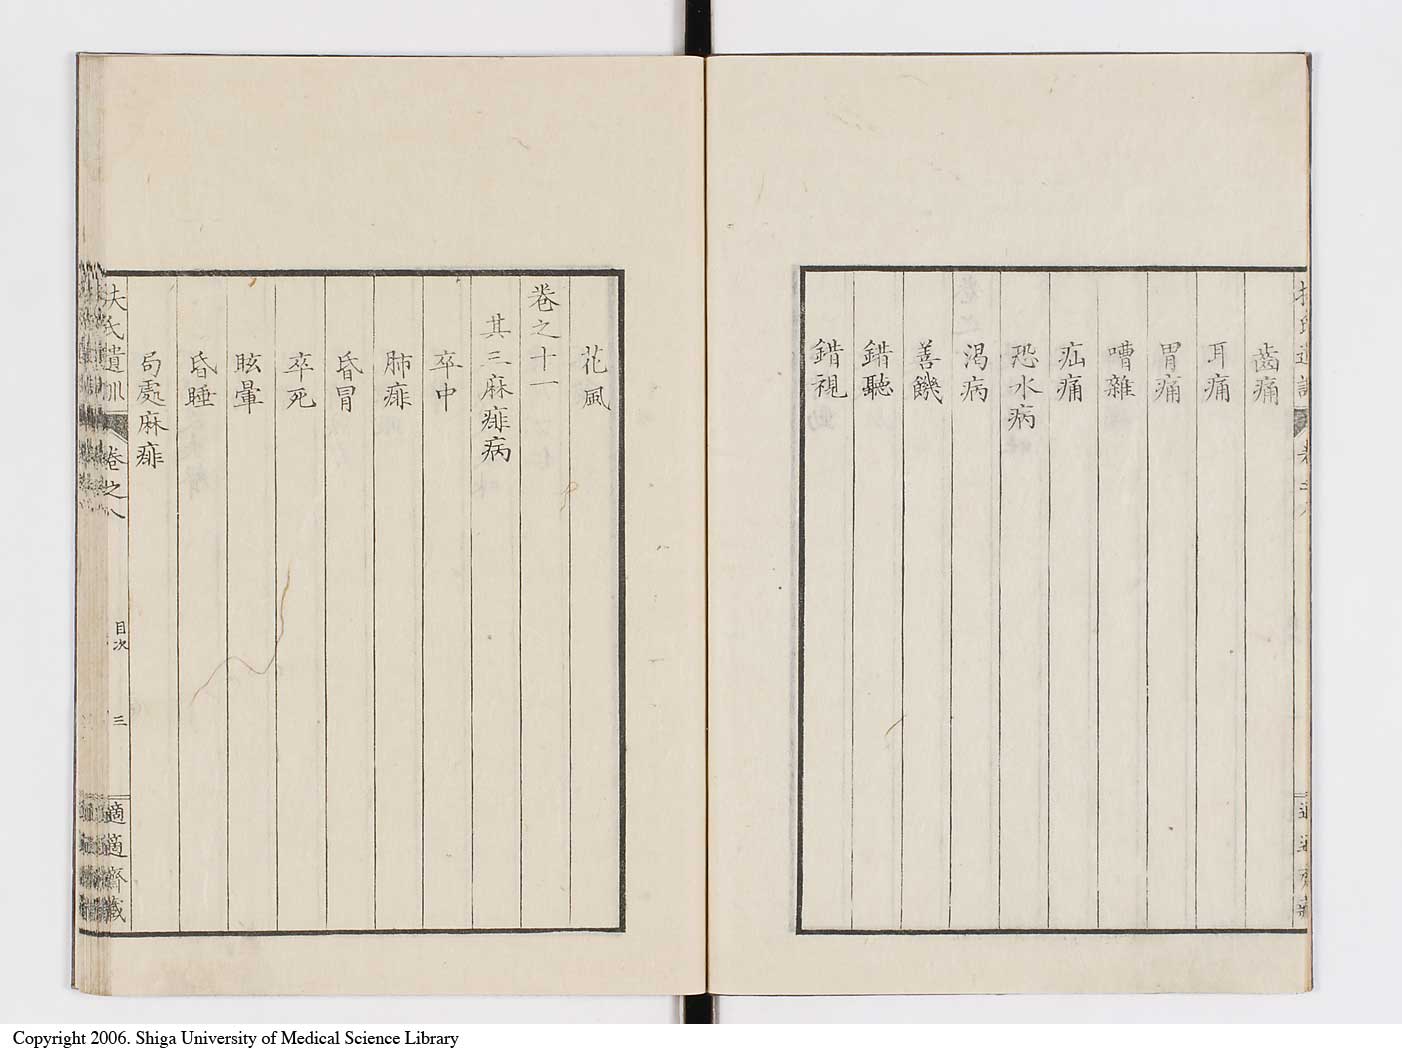 齒痛
耳痛
胃痛
嘈雜
疝痛
恐水病
渴病
善饑
錯聽
錯視
花風
卷之十一
其三麻痱病
卒中
肺痱
昏冒
卒死
眩暈
昏睡
局處麻痱
扶氏遺訓
卷之八
目次
三
適適齋藏
Copyright 2006. Shiga University of Medical Science Library